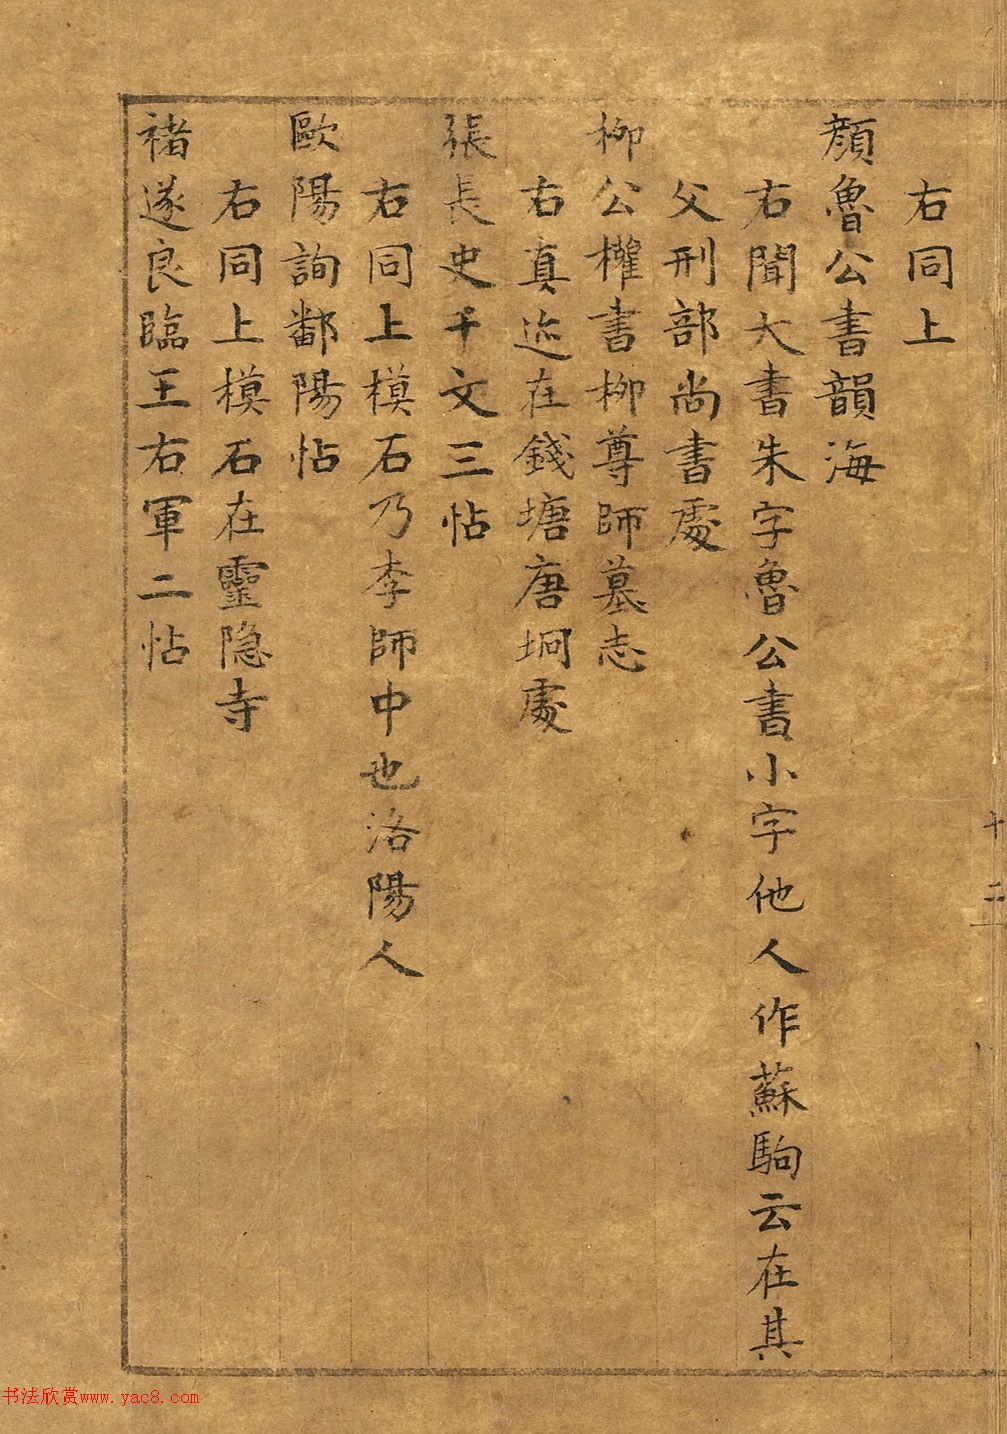 右同上
顏魯公書韻海
右聞大書朱字魯公書小字他人作蘇駒云在其
父刑部尚書處
柳公權書柳尊師墓志
右真迹在錢塘唐坰處
張長史千文三帖
右同上模石乃李師中也洛陽人
歐陽詢鄱陽帖
右同上模石在靈隐寺
褚遂良臨王右軍二帖
十二
书法欣赏www.yac8.com